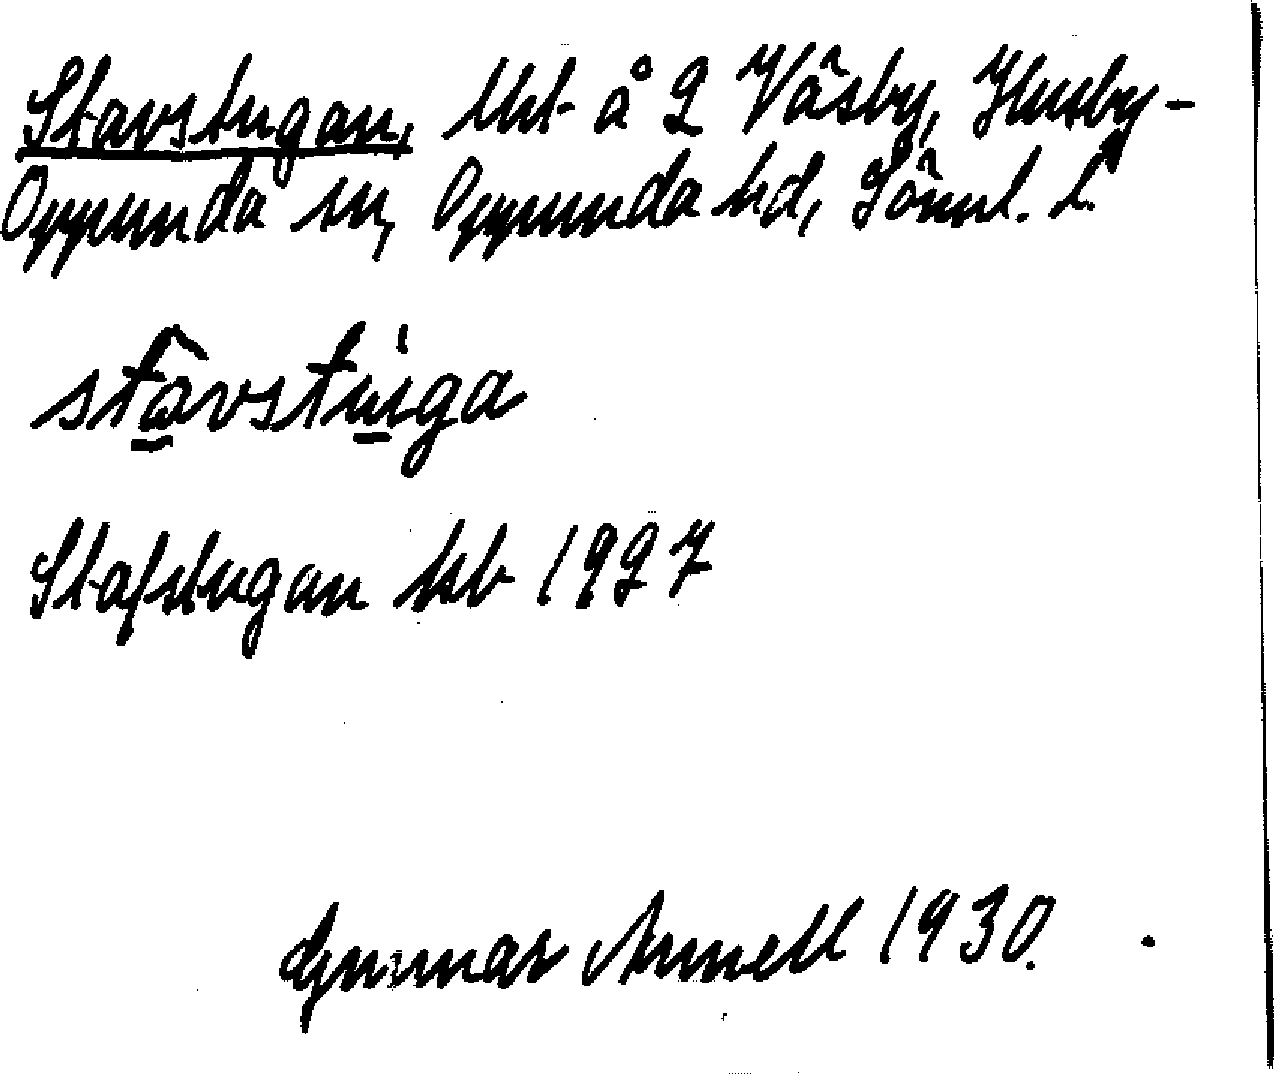 Stavstugan, lht å 2 Väsby, Husby-
Oppunda sn, Oppunda hd, Sörml. l.
stavstuga
Stafstugan kb 1927
Gunnar Arnell 1930.